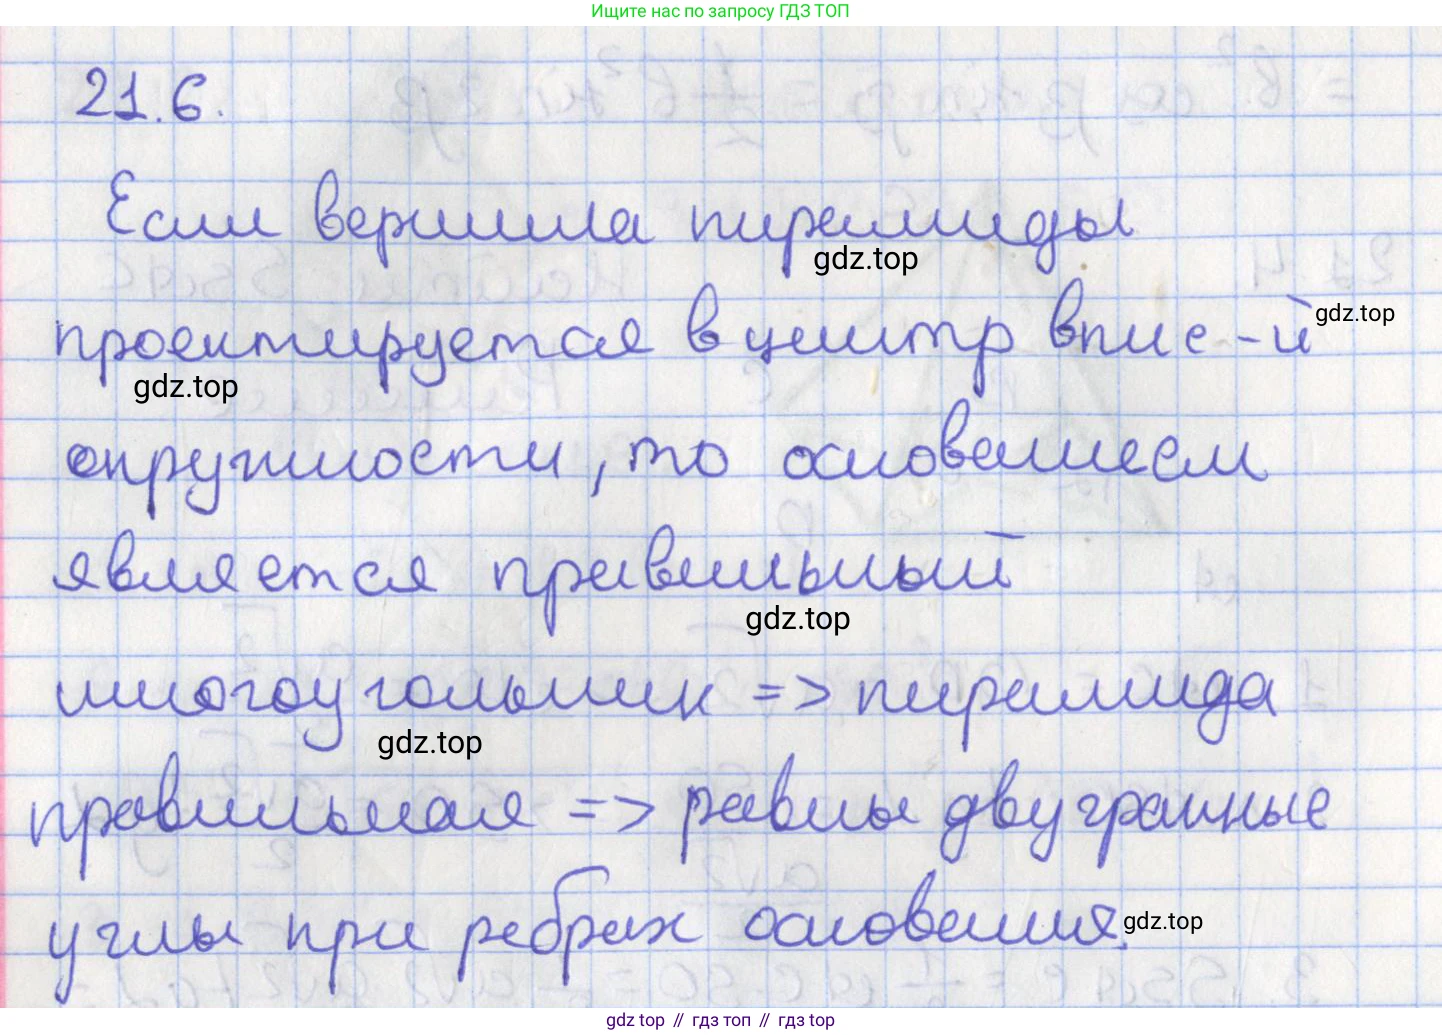 Ищите нас по запросу ГДЗ ТОП
21.6.
Если вершина пирамиды
gdz.top
проектируется в центр впис-й
gdz.top
gdz.top
окружности, то основанием
является правильный
gdz.top
многоугольник => пирамида
gdz.top
правильная => равны двугранные
углы при ребрах основания.
gdz.top
gdz top // гдз топ // gdz top